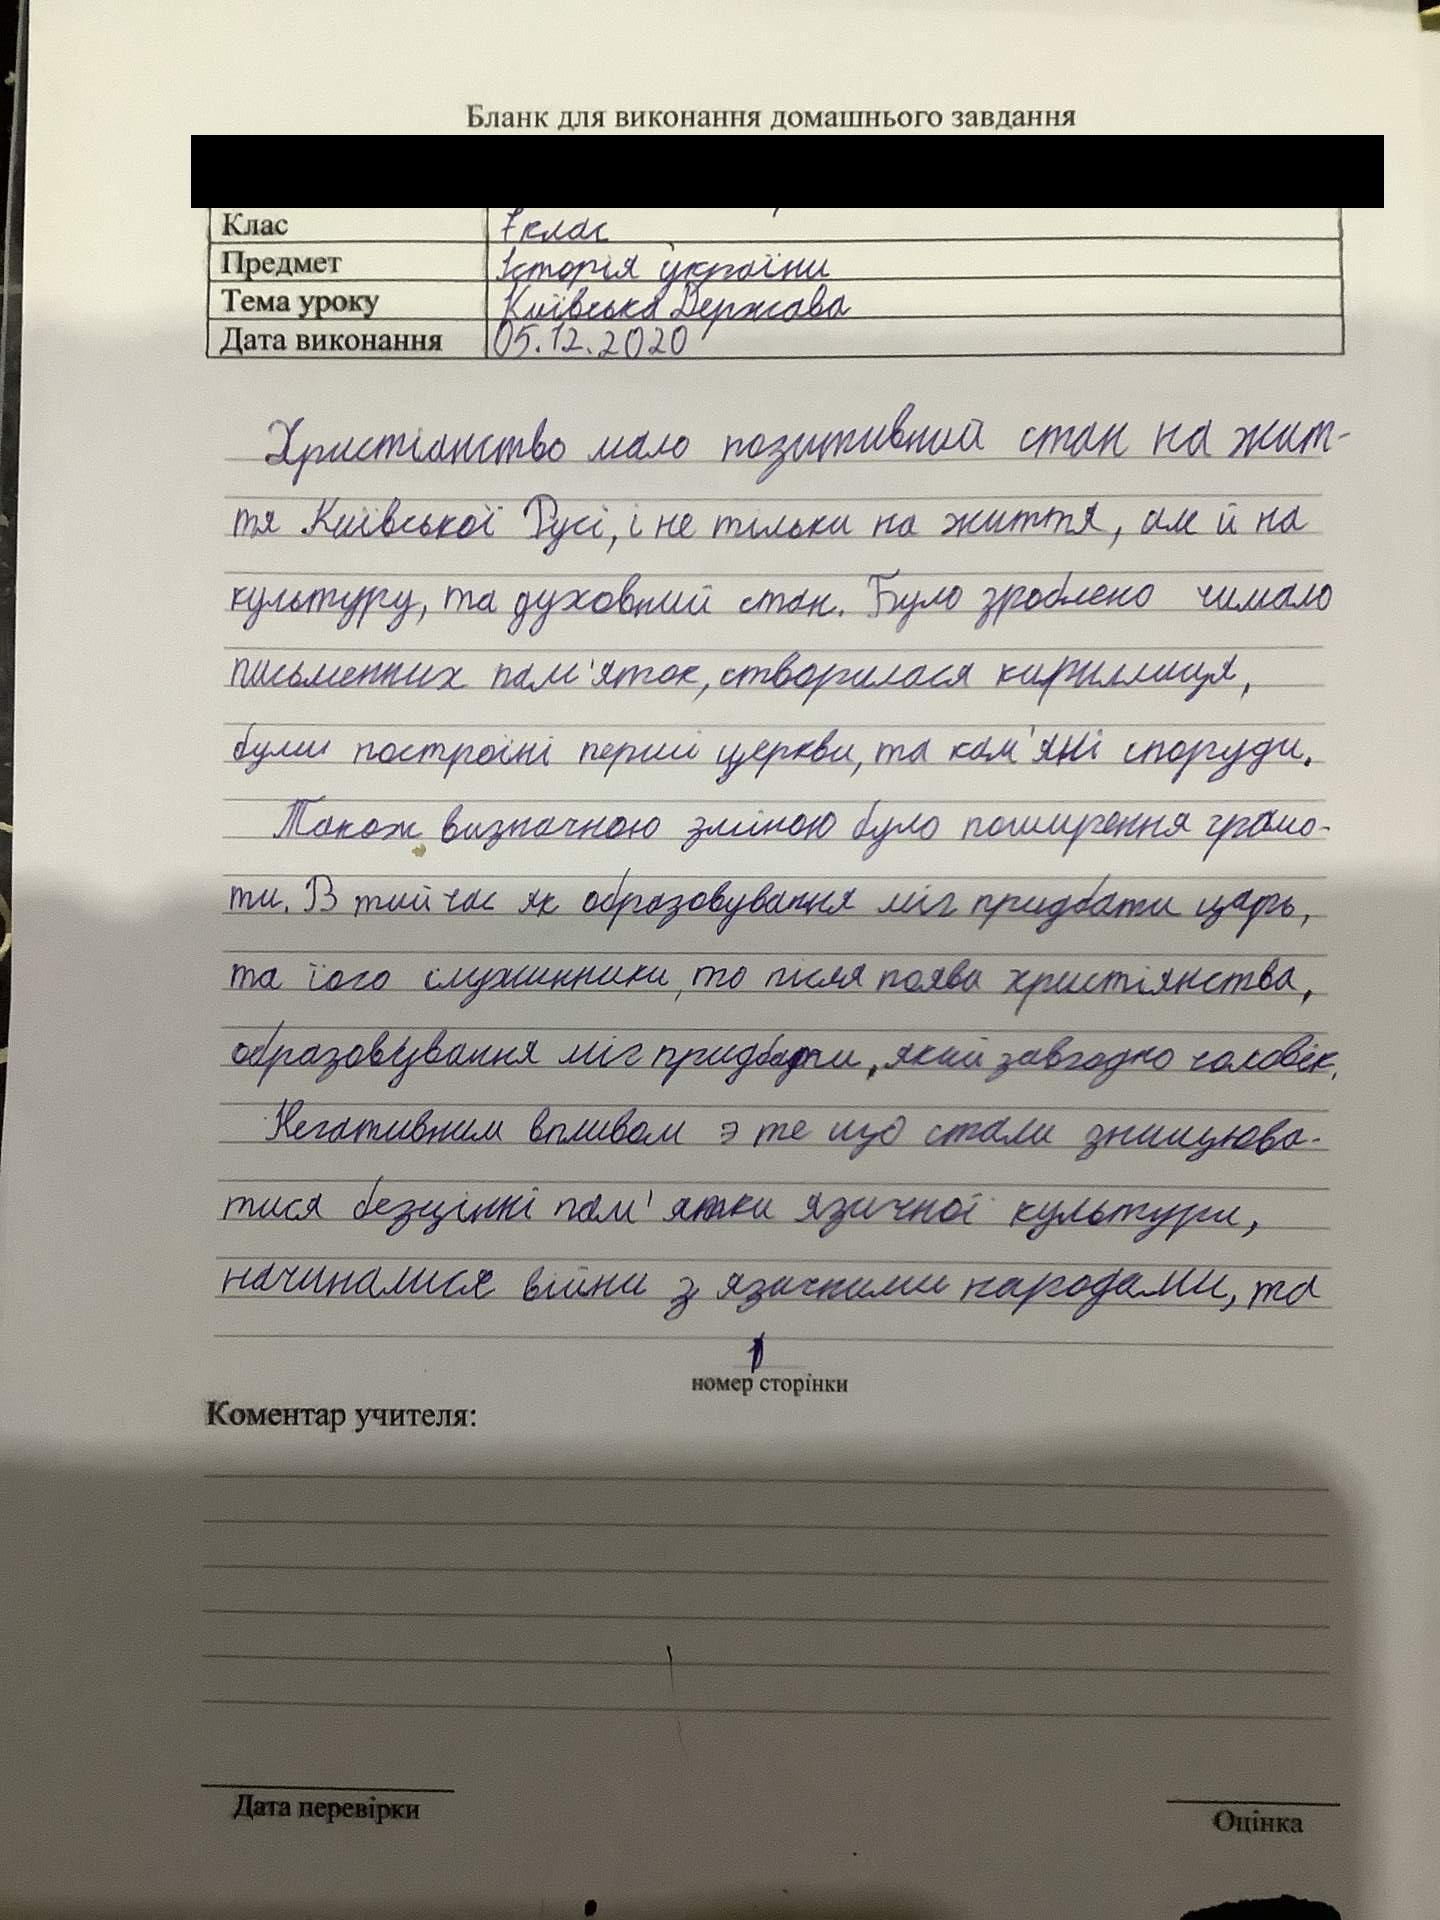 Бланк для виконання домашнього завдання
Клас 7 клас
Предмет Історія україни
Тема уроку Київська Держава
Дата виконання 05.12.2020
Христіанство мало позитивний стан на жит-
тя Київської Русі, і не тільки на життя, але й на
культуру, та духовний стан. Було зроблено чимало
письменних пам'яток, створилася кириллиця,
були построїні перші церкви, та кам'яні споруди.
Також визначною зміною було поширення грамо-
ти. В той час як образовування міг придбати царь,
та його служинники, то після поява христіянства,
образовування міг придбати, який завгодно чоловік.
Негативним впливом э те що стали знищюва-
тися безцінні пам'ятки язичної культури,
начиналися війни з язичними народами, та
1
номер сторінки
Коментар учителя:
Дата перевірки
Оцінка